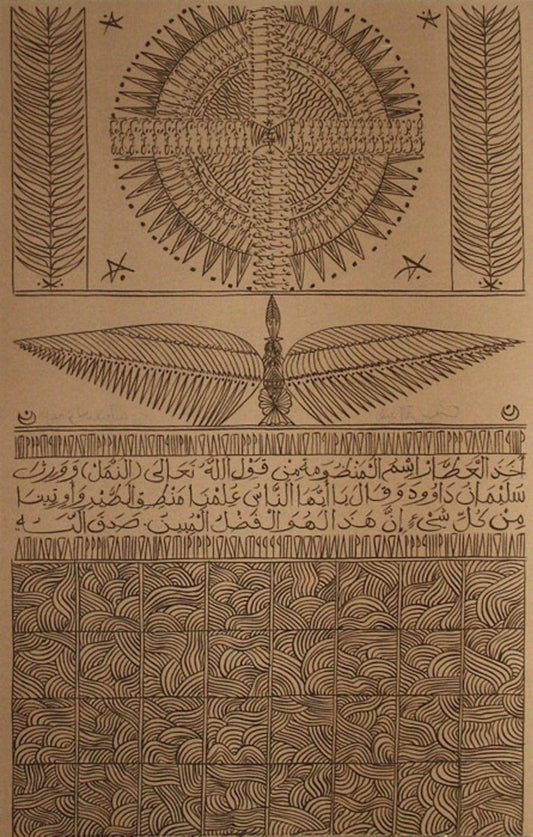 أَخَذَ الْعَطَّارُ اسْمَ الْمَنْظُومَةِ مِنْ قَوْلِ اللَّهِ تَعَالَى (النَّمْل) وَوَرِثَ
سُلَيْمَانُ دَاوُودَ وَقَالَ يَا أَيُّهَا النَّاسُ عُلِّمْنَا مَنْطِقَ الطَّيْرِ وَأُوتِينَا
مِنْ كُلِّ شَيْءٍ إِنَّ هَذَا لَهُوَ الْفَضْلُ الْمُبِينُ. صَدَقَ اللَّه